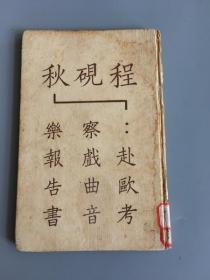 程硯秋
：赴歐考
察戲曲音
樂報告書